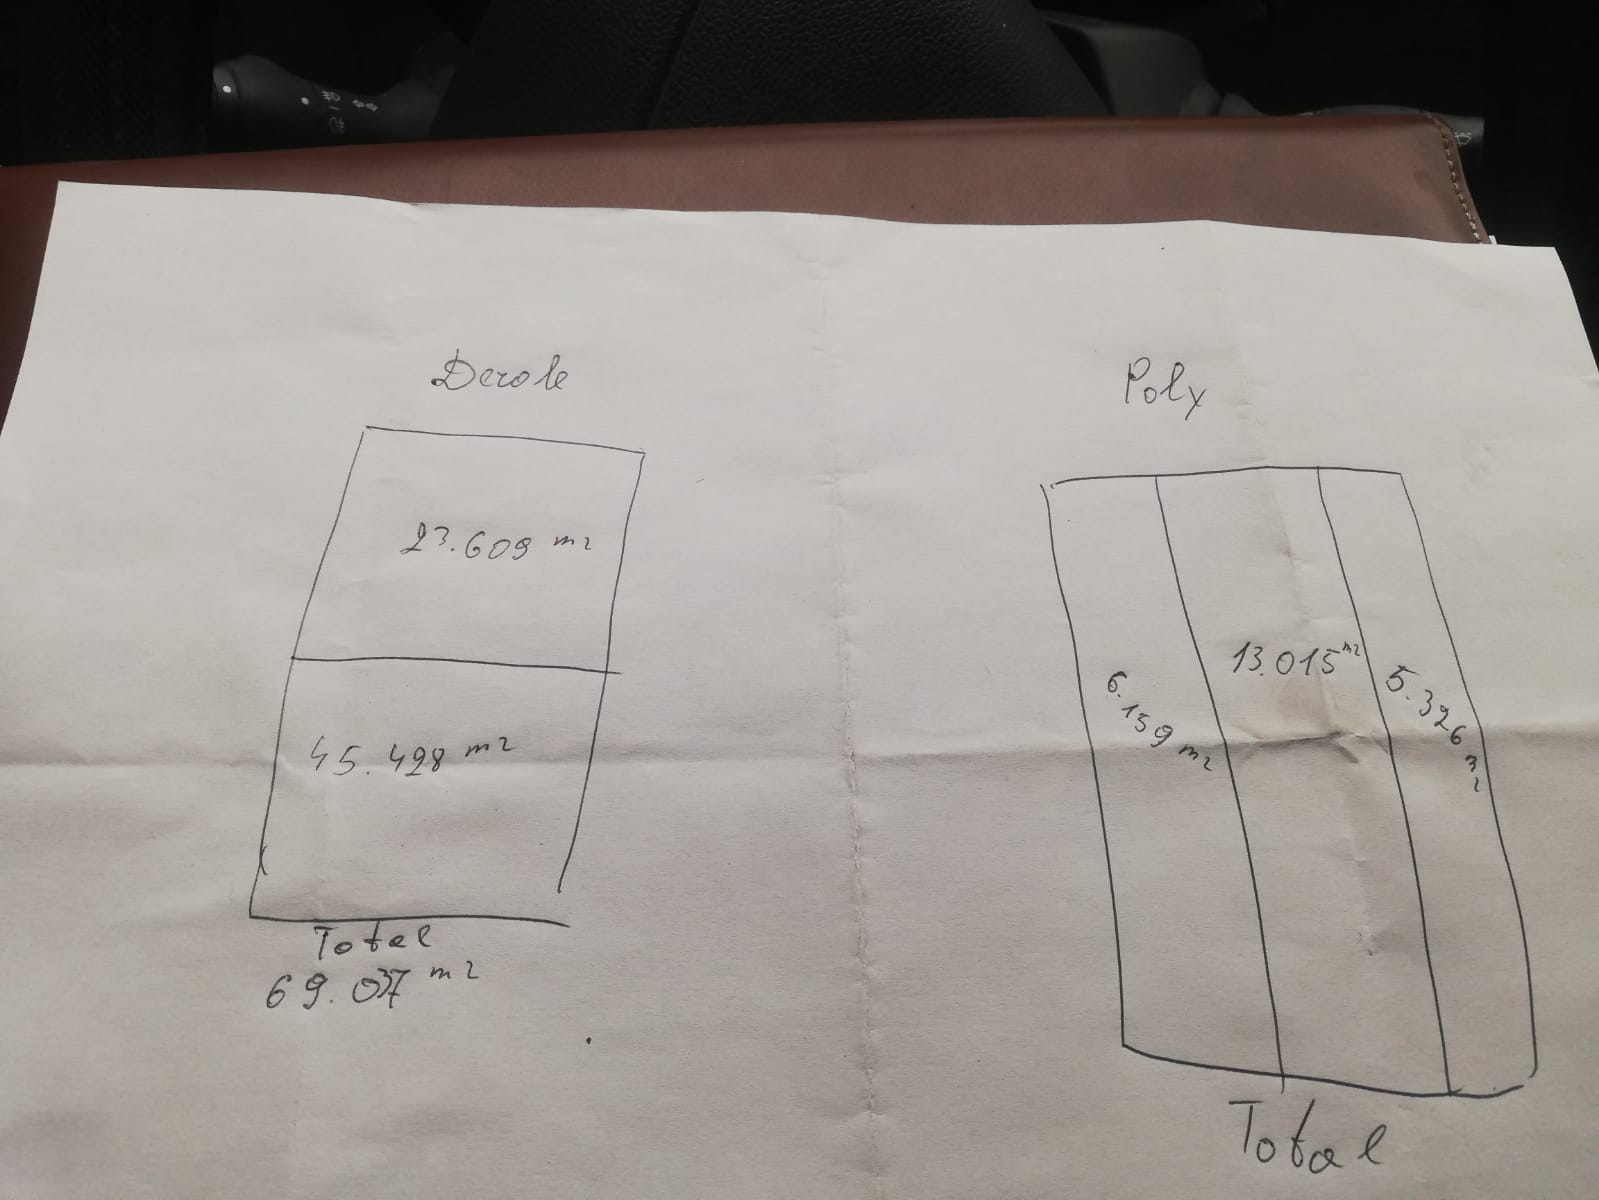 Derole
23.609 m2
45.428 m2
Total
69.037 m2
Poly
6.159 m2
13.015 m2
5.326 m2
Total